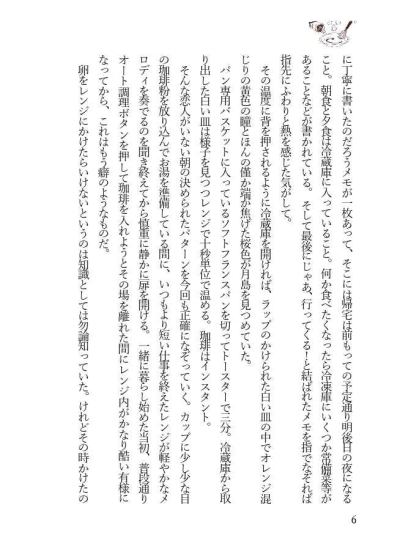 に丁寧に書いたのだろうメモが一枚あって、そこには帰宅は前もっての予定通り明後日の夜になる
こと。朝食と夕食は冷蔵庫に入っていること。何か食べたくなったら冷凍庫にいくつか常備菜等が
あることなどが書かれている。そして最後にじゃあ、行ってくる！と結ばれたメモを指でなぞれば
指先にふわりと熱を感じた気がして。
その温度に背を押されるように冷蔵庫を開ければ、ラップのかけられた白い皿の中でオレンジ混
じりの黄色の瞳とほんの僅か端が焦げた桜色が月島を見つめていた。
パン専用バスケットに入っているソフトフランスパンを切ってトースターで三分。冷蔵庫から取
り出した白い皿は様子を見つつレンジで十秒単位で温める。珈琲はインスタント。
そんな恋人がいない朝の決められたパターンを今回も正確になぞっていく。カップに少し少な目
の珈琲粉を放り込んでお湯を準備している間に、いつもより短い仕事を終えたレンジが軽やかなメ
ロディを奏でるのを聞き終えてから慎重に静かに扉を開ける。一緒に暮らし始めた当初、普段通り
オート調理ボタンを押して珈琲を入れようとその場を離れた間にレンジ内がかなり酷い有様に
なってから、これはもう癖のようなものだ。
卵をレンジにかけてたらいけないというのは知識としては勿論知っていた。けれどその時かけたの
6